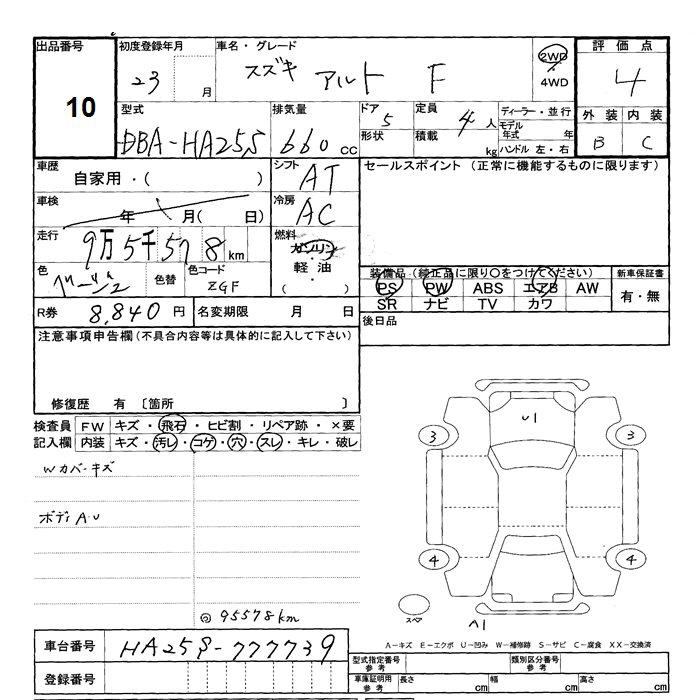 出品番号 初度登録年月 車名・グレード 評価点
10
23 月 スズキ アルト F 2WD 4WD 4
型式 排気量 ドア 定員 ディーラー・並行 外装 内装
DBA-HA25S 660 cc 5 4 人 モデル年式 年 B C
形状 積載 kg ハンドル 左・右
車歴 シフト セールスポイント (正常に機能するものに限ります)
自家用・( ) AT
車検 冷房
年 月( 日) AC
走行 燃料
9万5千578km ガソリン
軽油
・
( )
色 色替 色コード
ベージュ ZGF
装備品 (純正品に限り○をつけてください) 新車保証書
PS PW ABS エアB AW 有・無
SR ナビ TV カワ
R券 8,840 円 名変期限 月 日 後日品
注意事項申告欄 (不具合内容等は具体的に記入して下さい)
修復歴 有 〔箇所 〕
検査員 FW キズ・飛石・ヒビ割・リペア跡・×要
記入欄 内装 キズ・汚レ・コゲ・穴・スレ・キレ・破レ
Wカバーキズ
ボディA.U
95578km
U1
3 3
4 4
スペア
A1
A-キズ E-エクボ U-凹み W-補修跡 S-サビ C-腐食 XX-交換済
車台番号 HA25S-777739
登録番号
型式指定番号 参考 類別区分番号 参考
車庫証明用 参考 長さ cm 幅 cm 高さ cm